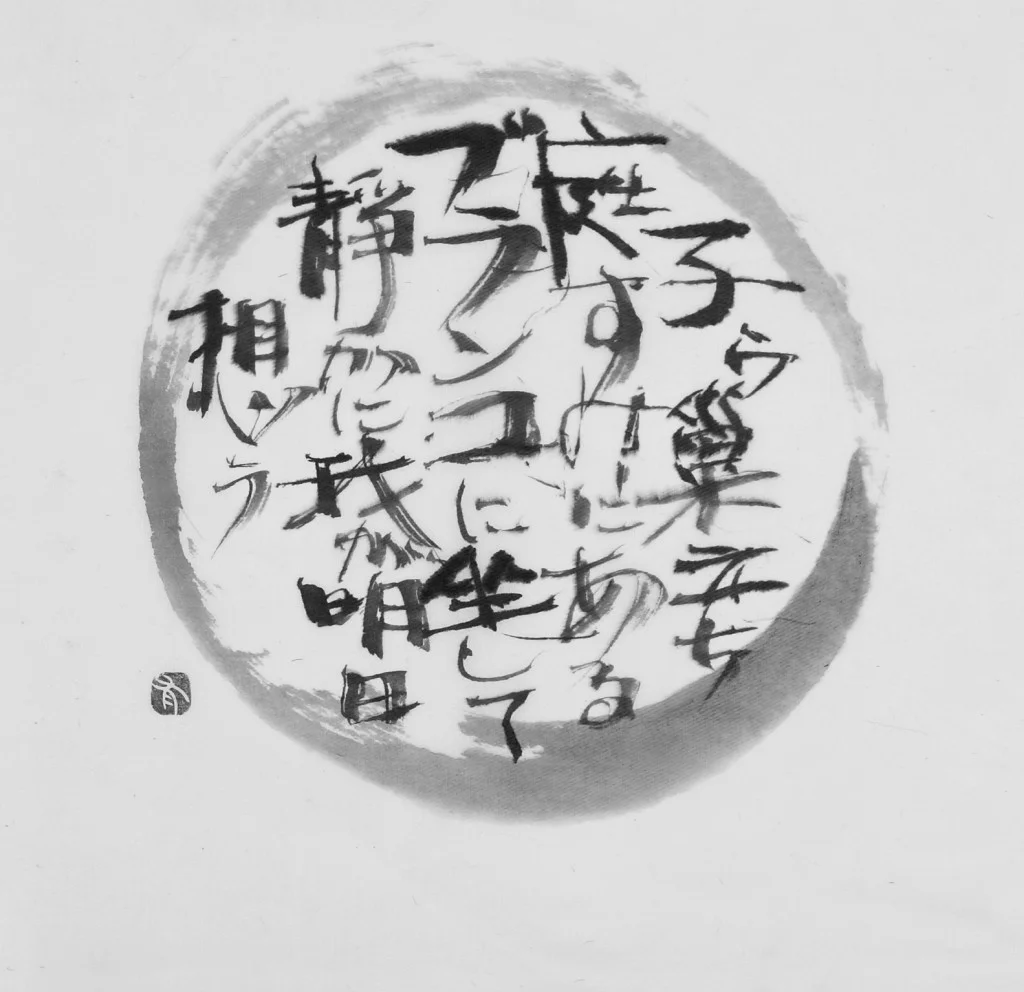 子ら巣立ち
庭すみにある
ブランコに坐して
静かに我が明日
想う